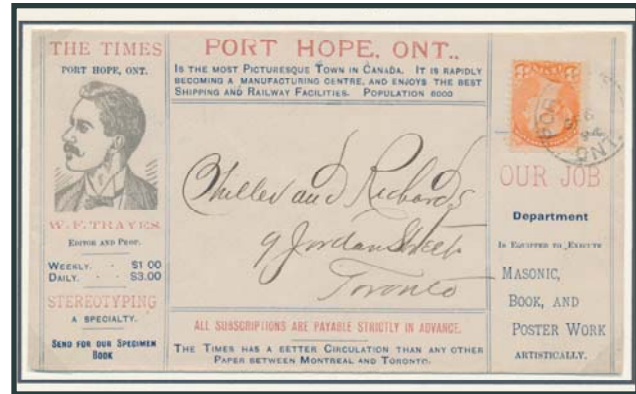 THE TIMES
PORT HOPE, ONT.
W. F. THAYES.
EDITOR AND PROP.
WEEKLY. $1 00
DAILY. $3.00
STEREOTYPING
A SPECIALTY.
SEND FOR OUR SPECIMEN
BOOK
PORT HOPE, ONT.,
IS THE MOST PICTURESQUE TOWN IN CANADA. IT IS RAPIDLY
BECOMING A MANUFACTURING CENTRE, AND ENJOYS THE BEST
SHIPPING AND RAILWAY FACILITIES. POPULATION 8000
Miller and Richards
9 Jordan Street
Toronto
ALL SUBSCRIPTIONS ARE PAYABLE STRICTLY IN ADVANCE.
THE TIMES HAS A BETTER CIRCULATION THAN ANY OTHER
PAPER BETWEEN MONTREAL AND TORONTO.
POR
6
94
ONT.
OUR JOB
Department
IS EQUIPPED TO EXECUTE
MASONIC,
BOOK, AND
POSTER WORK
ARTISTICALLY.